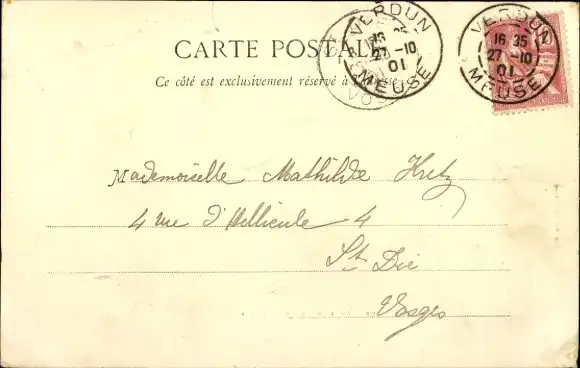 CARTE POSTALE
Ce côté est exclusivement réservé à l'adresse
VERDUN
16 35
27 -10
01
MEUSE
VERDUN
16 35
27 -10
01
MEUSE
VOS
Mademoiselle Mathilde
4 rue d'Hellieule 4
St Dié
Vosges